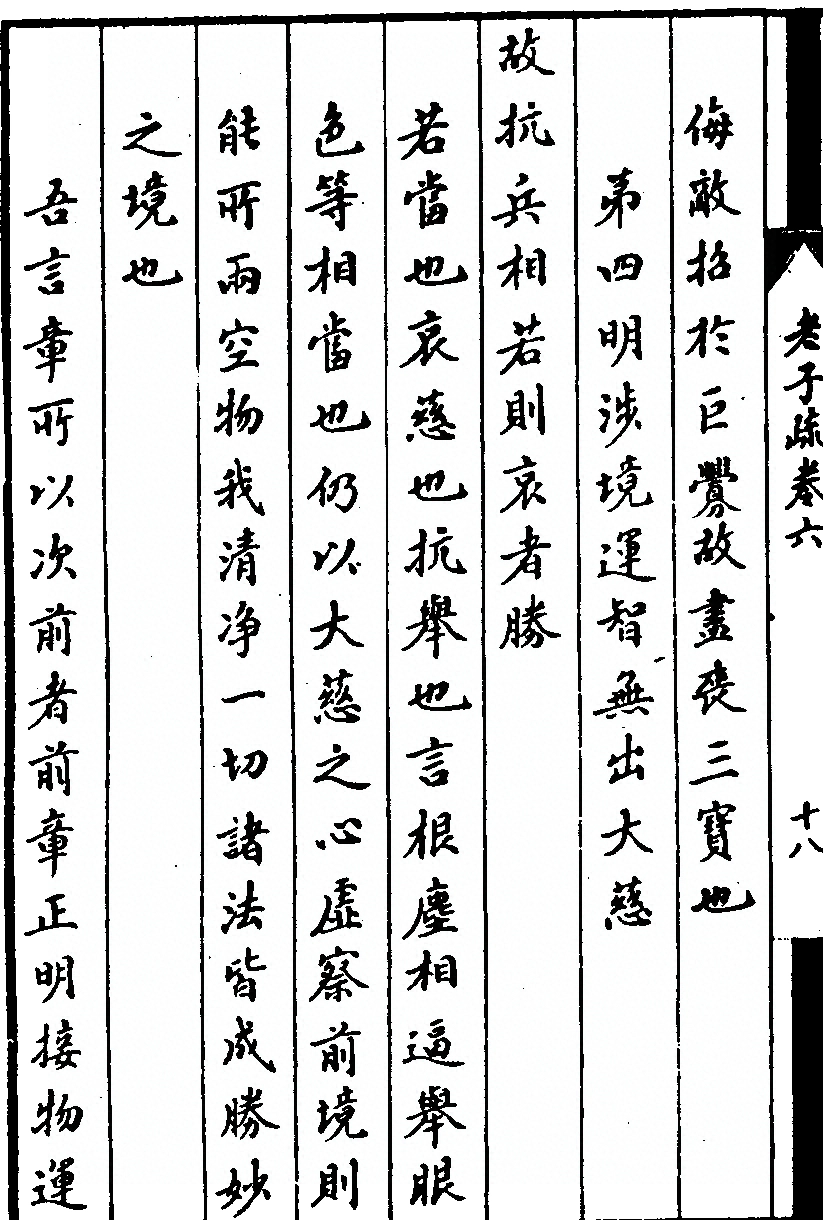 老子疏卷六
十八
侮敵招於巨釁故盡喪三寶也
第四明涉境運智無出大慈
故抗兵相若則哀者勝
若當也哀慈也抗舉也言根塵相逼舉眼
色等相當也仍以大慈之心虛察前境則
能所兩空物我清净一切諸法皆成勝妙
之境也
吾言章所以次前者前章正明接物運